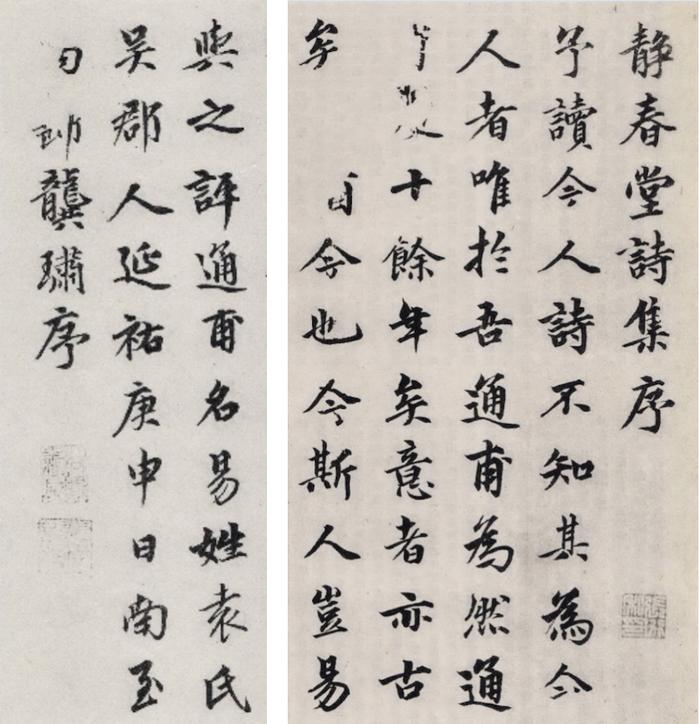 静春堂詩集序
予讀今人詩不知其為今
人者唯於吾通甫為然通
十餘年矣意者亦古
矣今也今斯人豈易
與之評通甫名易姓袁氏
吳郡人延祐庚申日南至
龔璛序